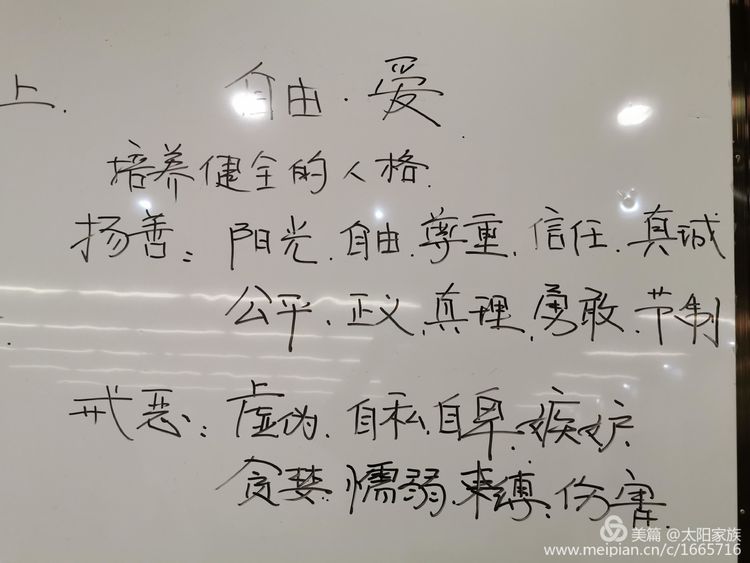 上. 自由·爱
培养健全的人格.
扬善: 阳光.自由.尊重.信任.真诚
公平.正义.真理.勇敢.节制
戒恶: 虚伪.自私.自卑.嫉妒
贪婪.懦弱.束缚.伤害.
美篇 @太阳家族
www.meipian.cn/c/1665716